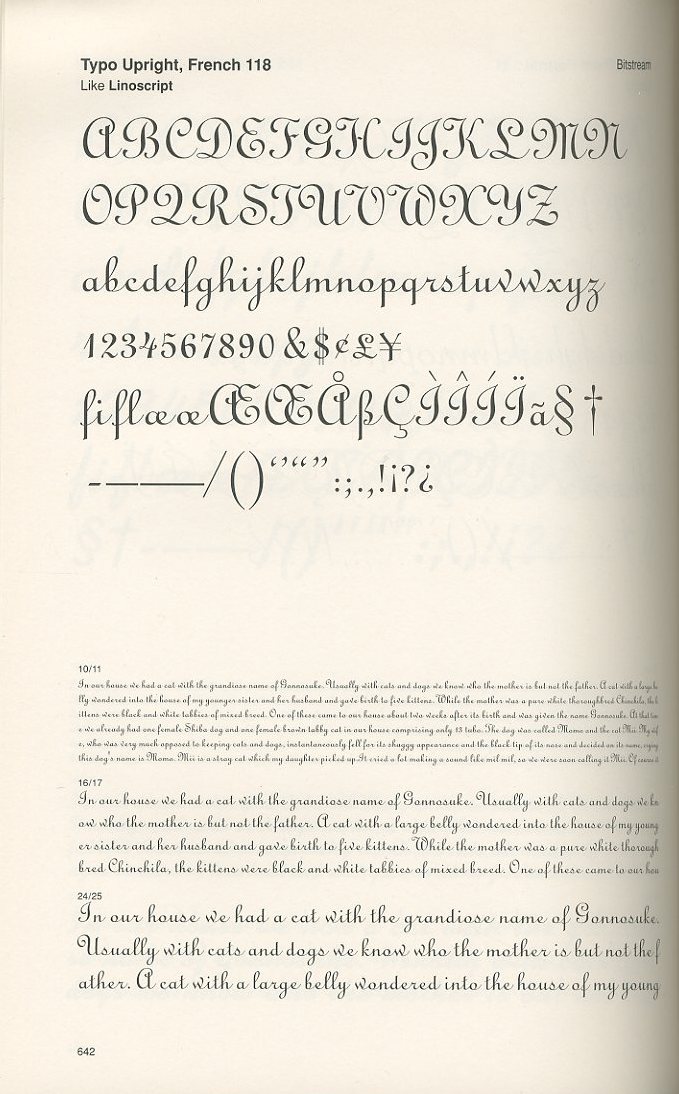 Typo Upright, French 118
Bitstream
Like Linoscript
ABCDEFGHIJKLMN
OPQRSTUVWXYZ
abcdefghijklmnopqrstuvwxyz
1234567890 &$¢£¥
fiflæœÆŒÅßÇÌÎÍÏã§†
-–—/()‘’“”:;.,!¡?¿
10/11
In our house we had a cat with the grandiose name of Gonnosuke. Usually with cats and dogs we know who the mother is but not the father. A cat with a large be
lly wondered into the house of my younger sister and her husband and gave birth to five kittens. While the mother was a pure white thoroughbred Chinchila, the k
ittens were black and white tabbies of mixed breed. One of these came to our house about two weeks after its birth and was given the name Gonnosuke. At that tim
e we already had one female Shiba dog and one female brown tabby cat in our house comprising only 13 tubo. The dog was called Momo and the cat Mii. My wif
e, who was very much opposed to keeping cats and dogs, instantaneously fell for its shaggy appearance and the black tip of its nose and decided on its name, ejoy
this dog's name is Momo. Mii is a stray cat which my daughter picked up. It cried a lot making a sound like mil mil, so we were soon calling it Mii. Of course it
16/17
In our house we had a cat with the grandiose name of Gonnosuke. Usually with cats and dogs we kn
ow who the mother is but not the father. A cat with a large belly wondered into the house of my young
er sister and her husband and gave birth to five kittens. While the mother was a pure white thorough
bred Chinchila, the kittens were black and white tabbies of mixed breed. One of these came to our hou
24/25
In our house we had a cat with the grandiose name of Gonnosuke.
Usually with cats and dogs we know who the mother is but not the f
ather. A cat with a large belly wondered into the house of my young
642